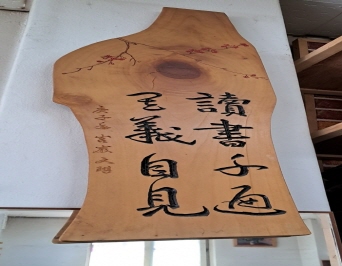 讀書千遍
其義自見